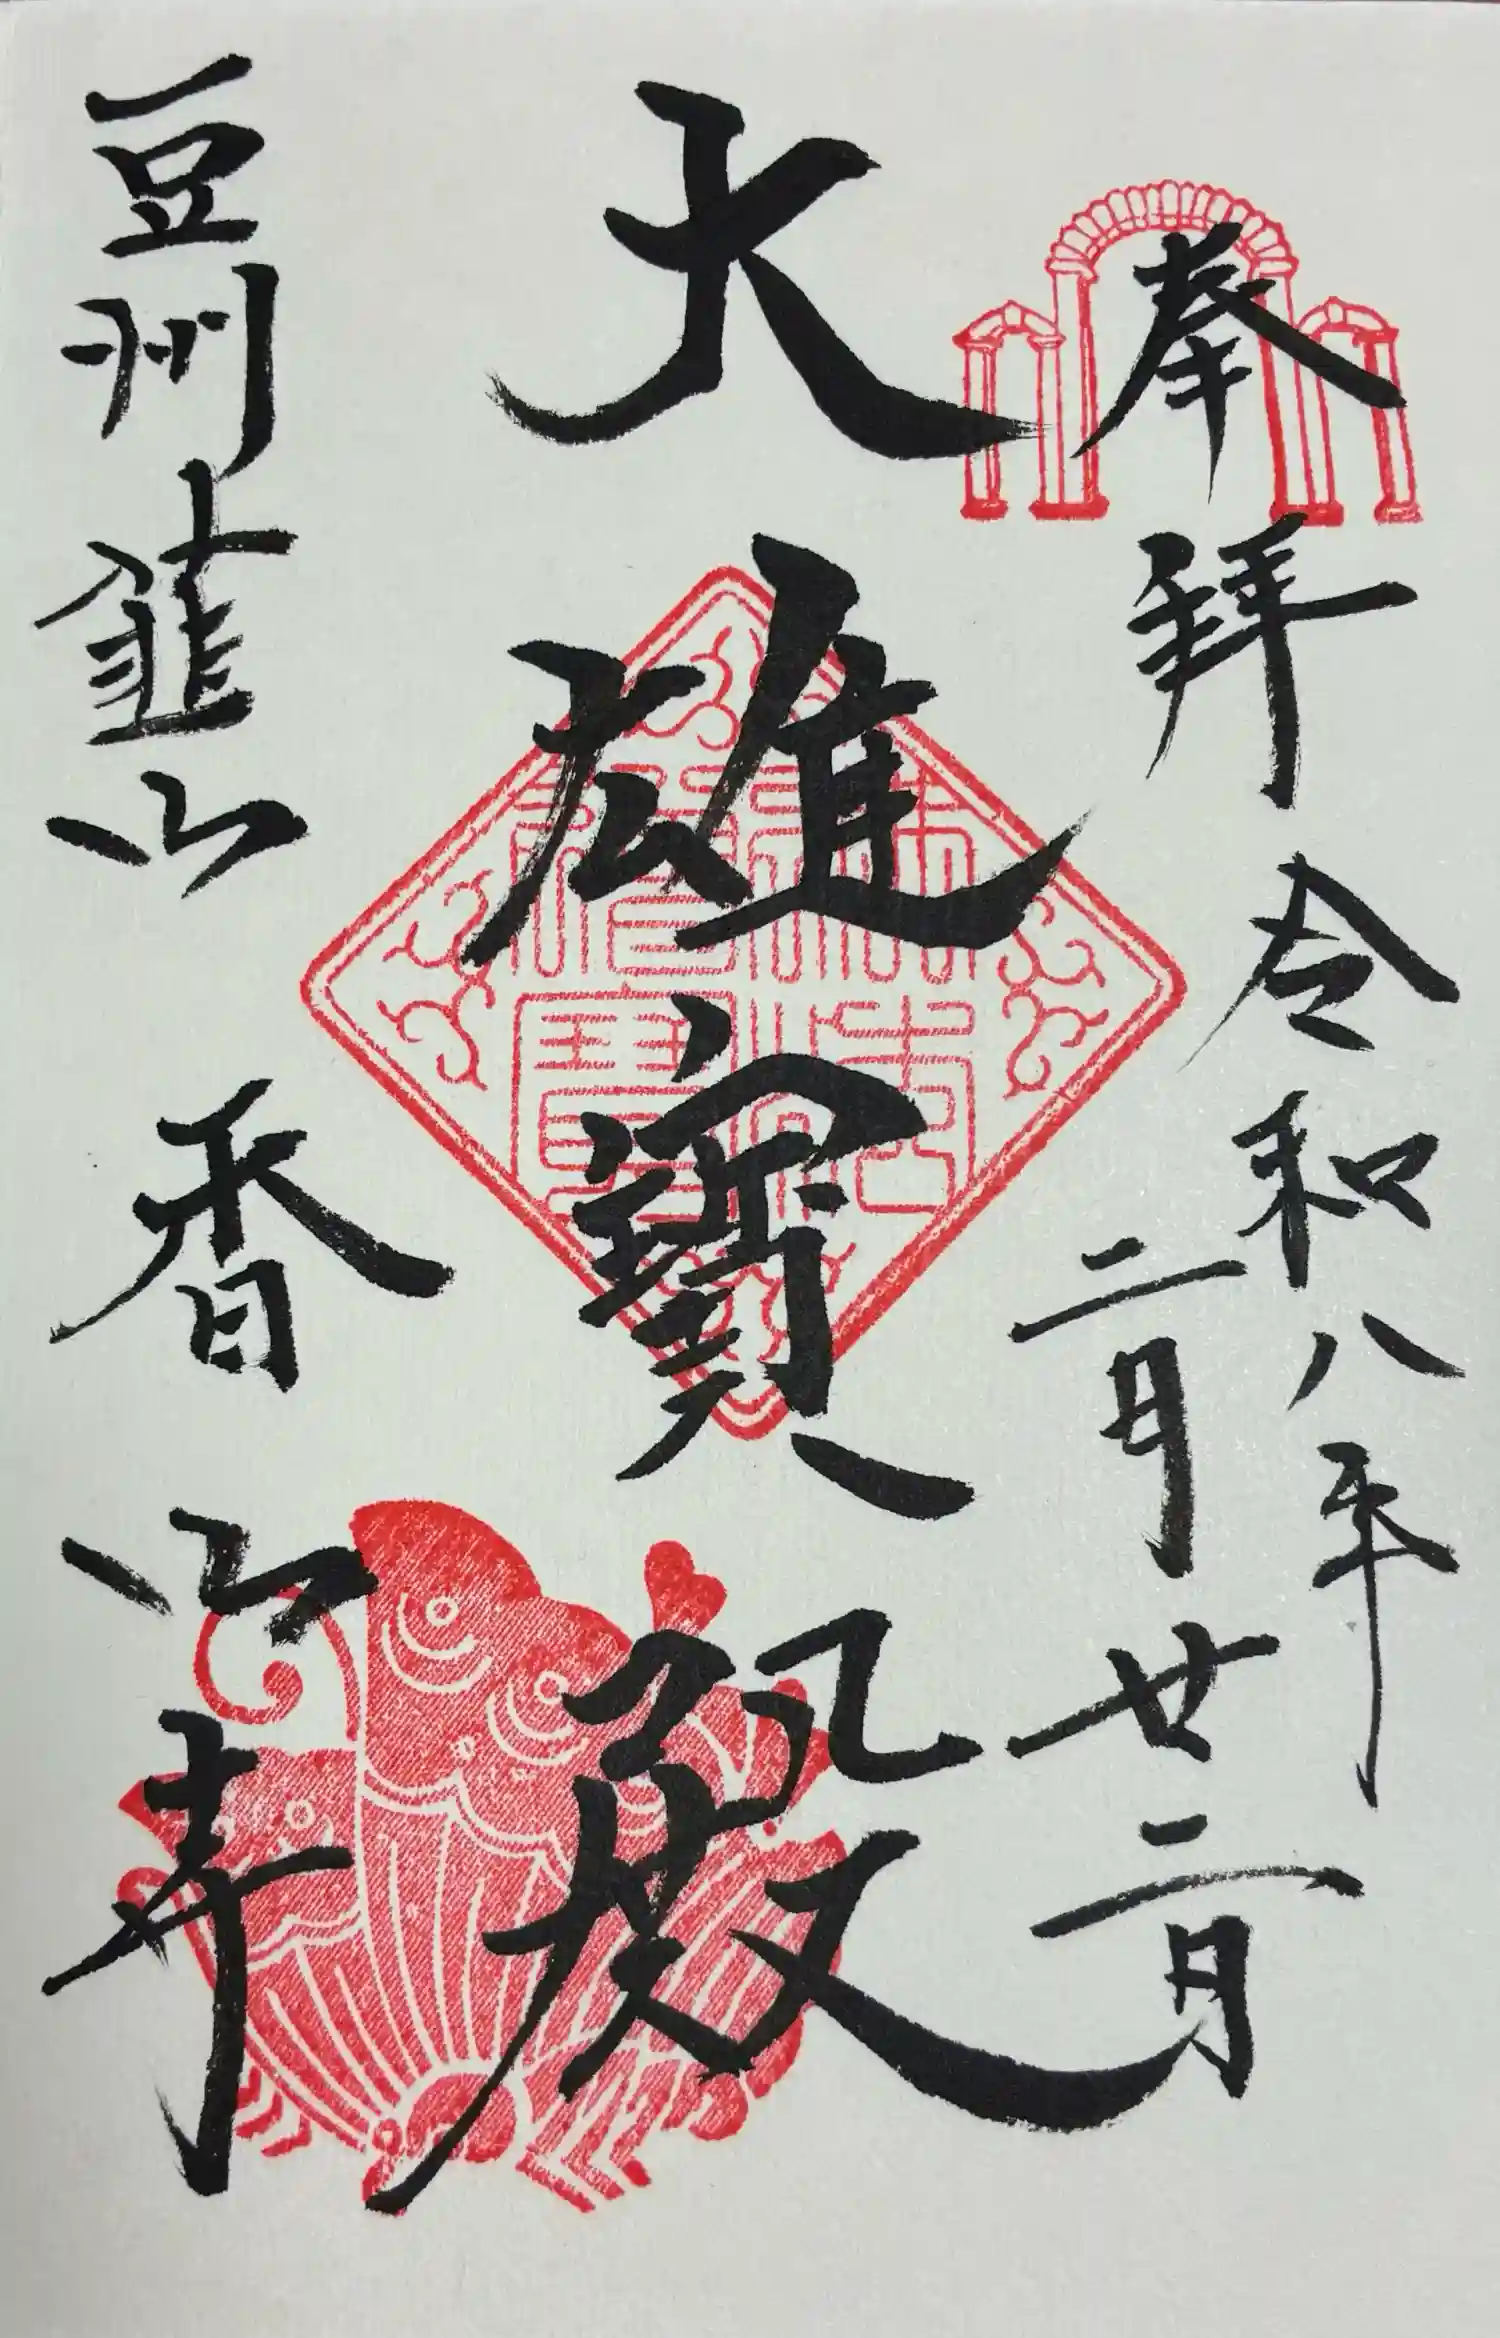 奉拜
令和八年
二月廿二日
大雄寶殿
豆州韮山
香山寺
佛法僧寶